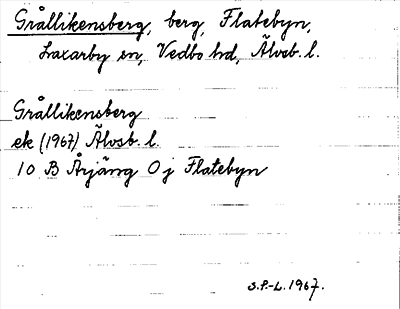 Grållikensberg, berg, Flatebyn,
Laxarby sn, Vedbo hd, Älvsb. l.
Grållikensberg
ek (1967) Älvsb. l.
10 B Årjäng 0 j Flatebyn
S.P.-L. 1967.